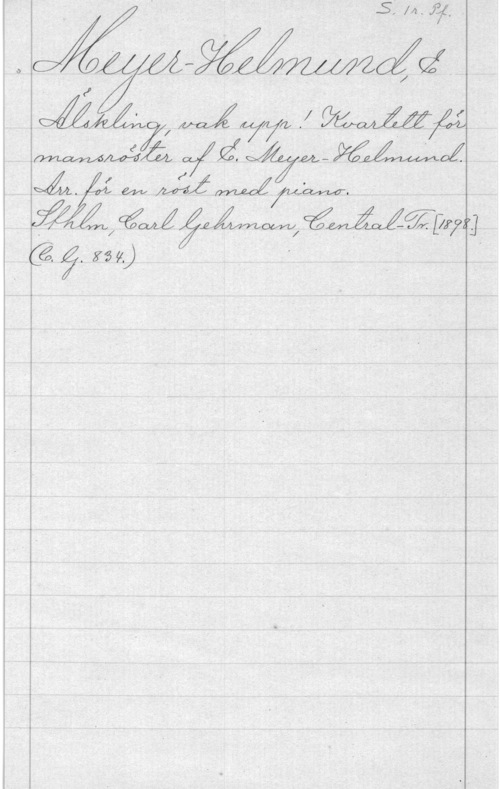 S. 1 r. Pf.
Meyer-Helmund, E
Älskling, vak upp! Kvartett för
mansröster af E. Meyer-Helmund.
Arr. för en röst med piano.
Sthlm, Carl Gehrman, Central-Tr. [1898]
(C. G. 834.)